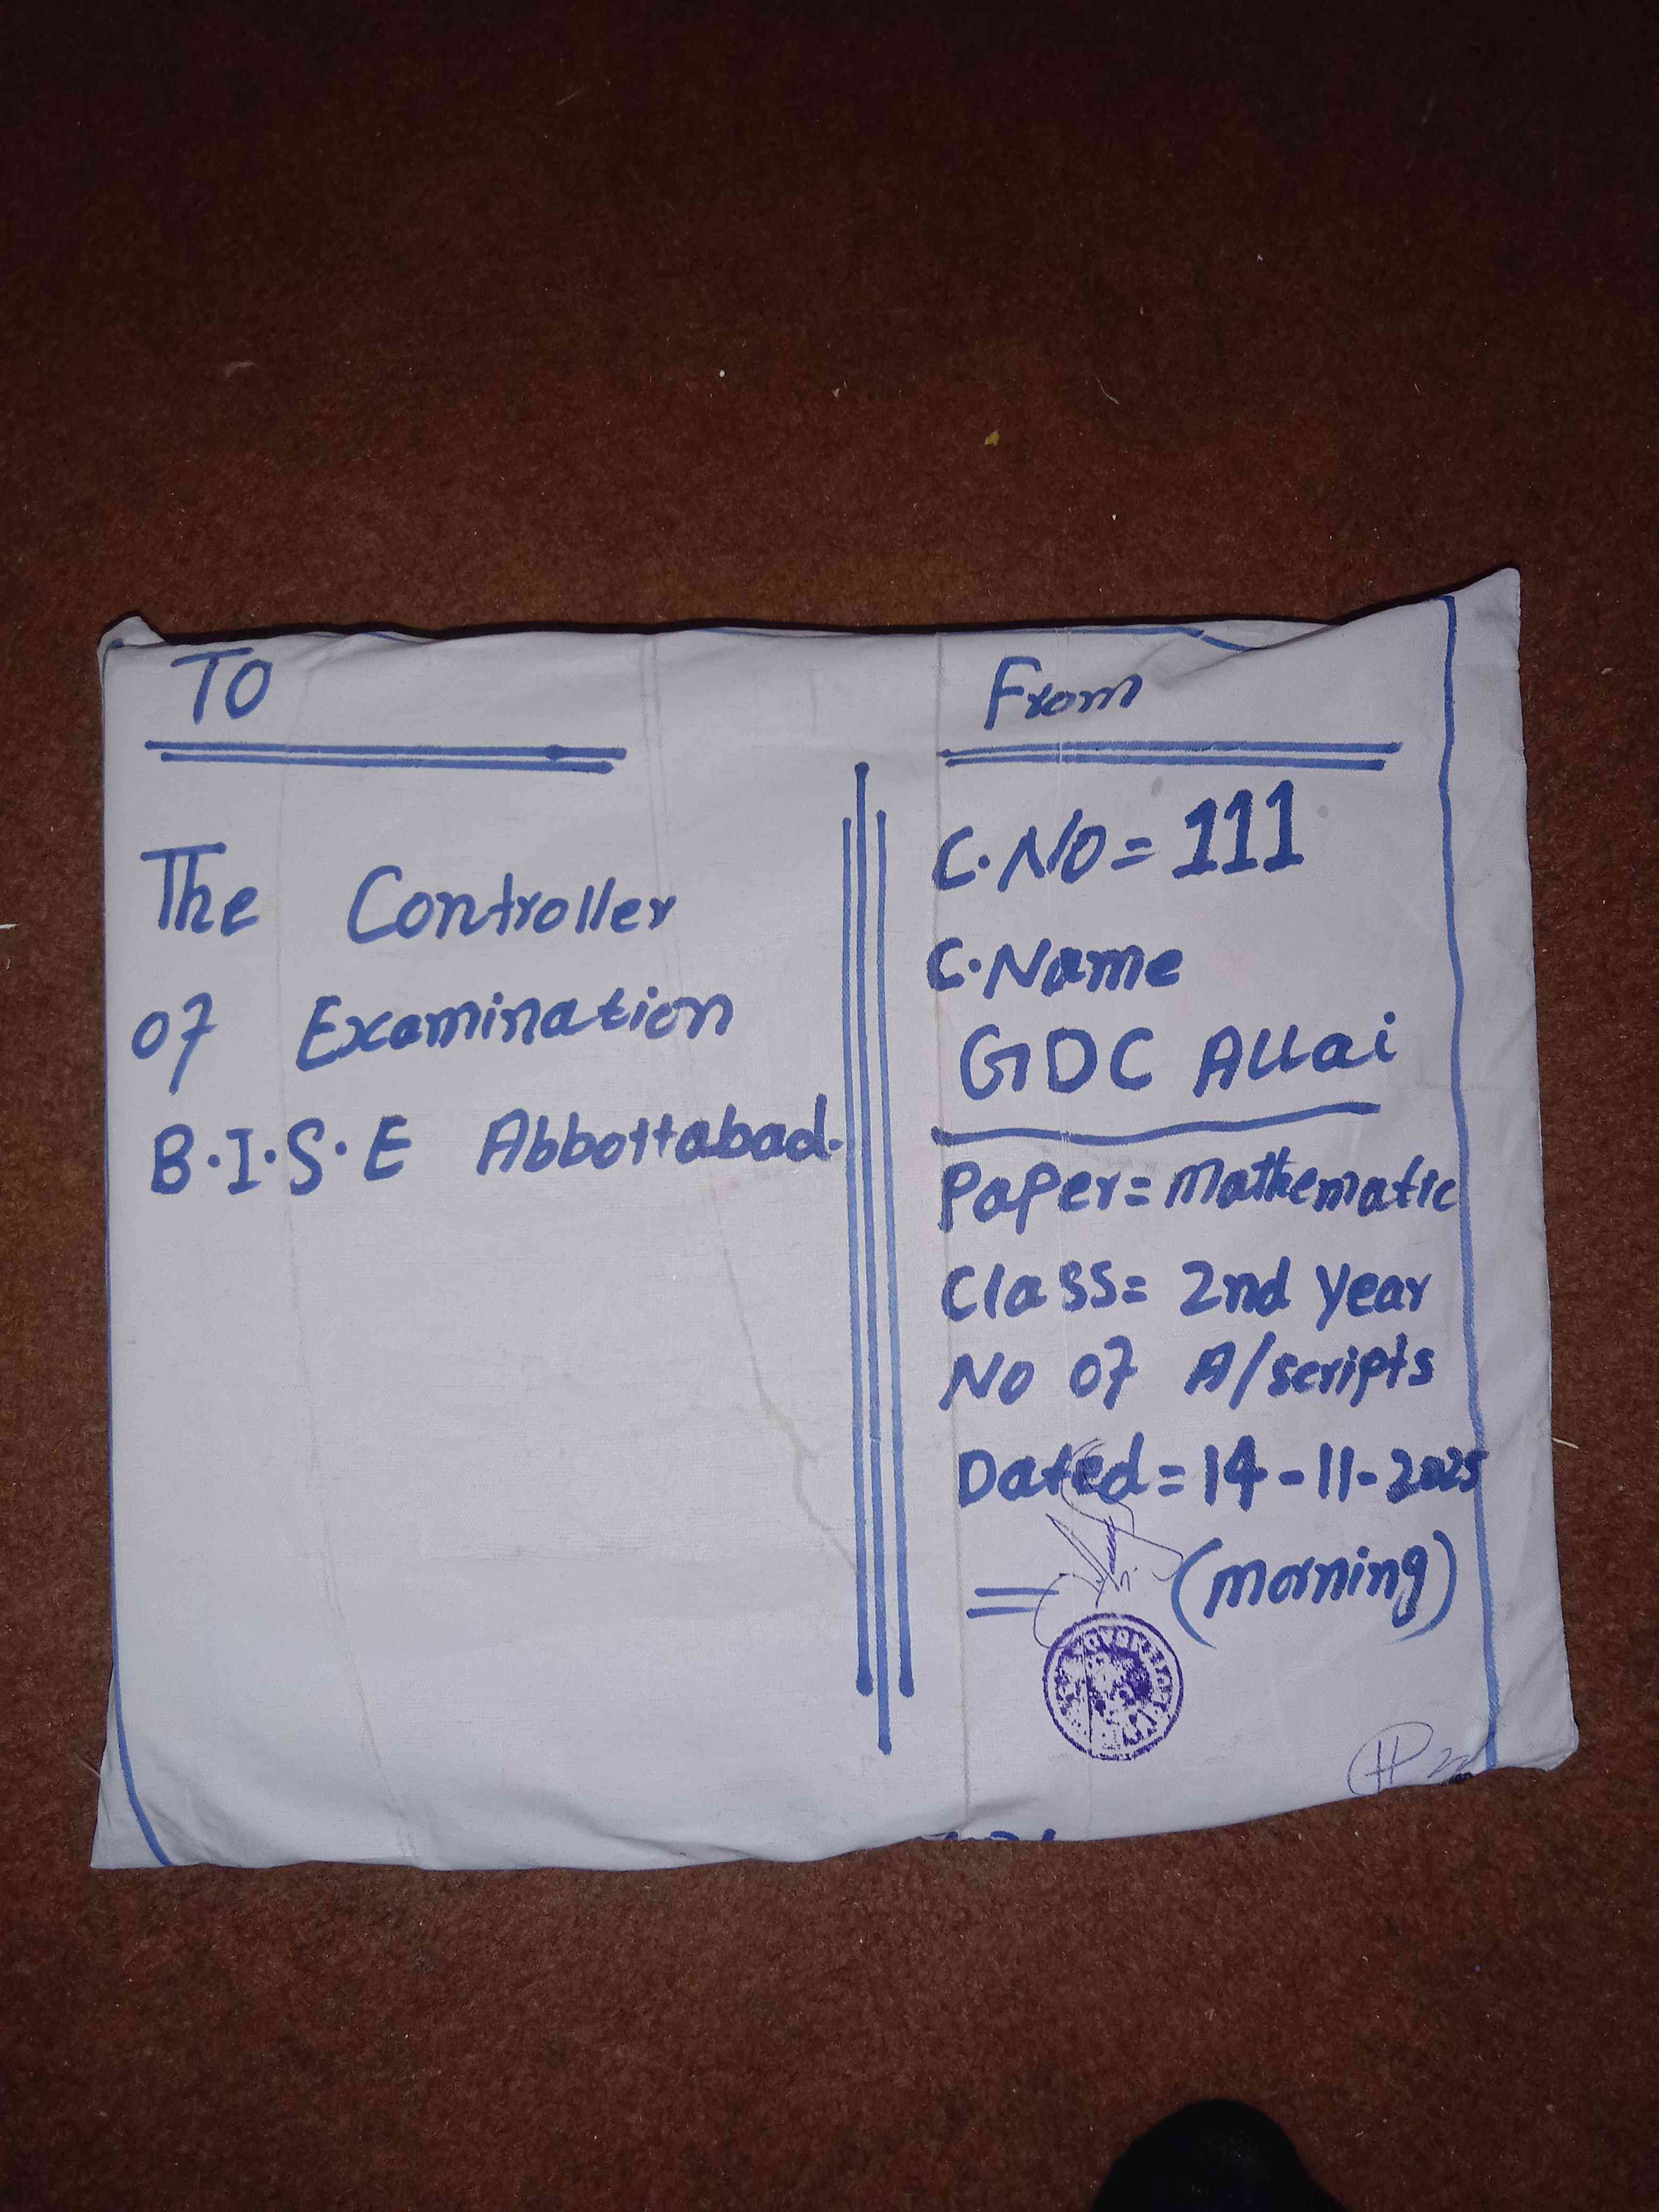 To
The Controller
of Examination
B.I.S.E Abbottabad.
From
C.No = 111
C.Name
GDC Allai
Paper = Mathematic
Class = 2nd year
No of A/scripts
Dated = 14-11-2025
(morning)